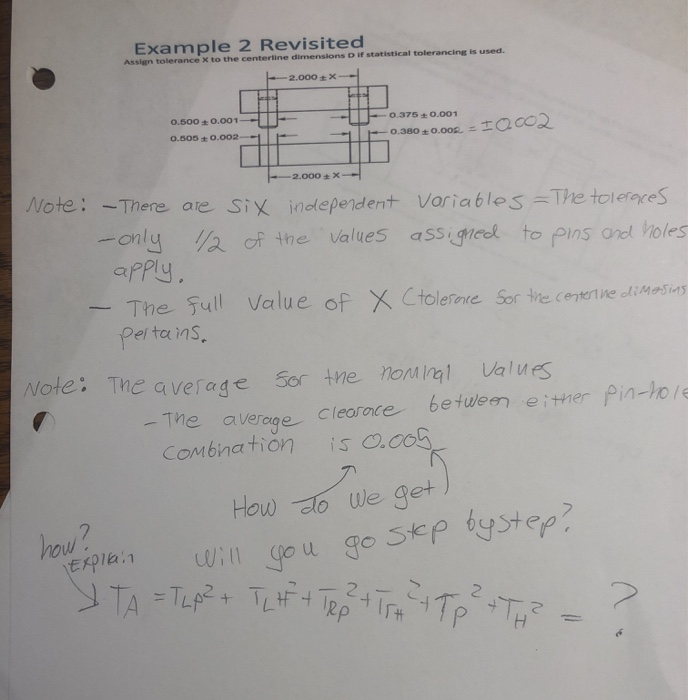 Example 2 Revisited
Assign tolerance X to the centerline dimensions D if statistical tolerancing is used.
2.000 ± X
0.500 ± 0.001
0.375 ± 0.001
0.505 ± 0.002
0.380 ± 0.002 = ±0.002
2.000 ± X
Note: - There are six independent variables = The tolerances
- only 1/2 of the values assigned to pins and holes
apply.
- The full value of X (tolerance for the centerline dimesins
pertains.
Note: The average for the nominal values
- The average clearance between either pin-hole
combination is 0.005
How do we get
how?
Explain
Will you go step by step?
T_A = T_LP² + T_LH² + T_RP² + T_rH² + T_P² + T_H² = ?